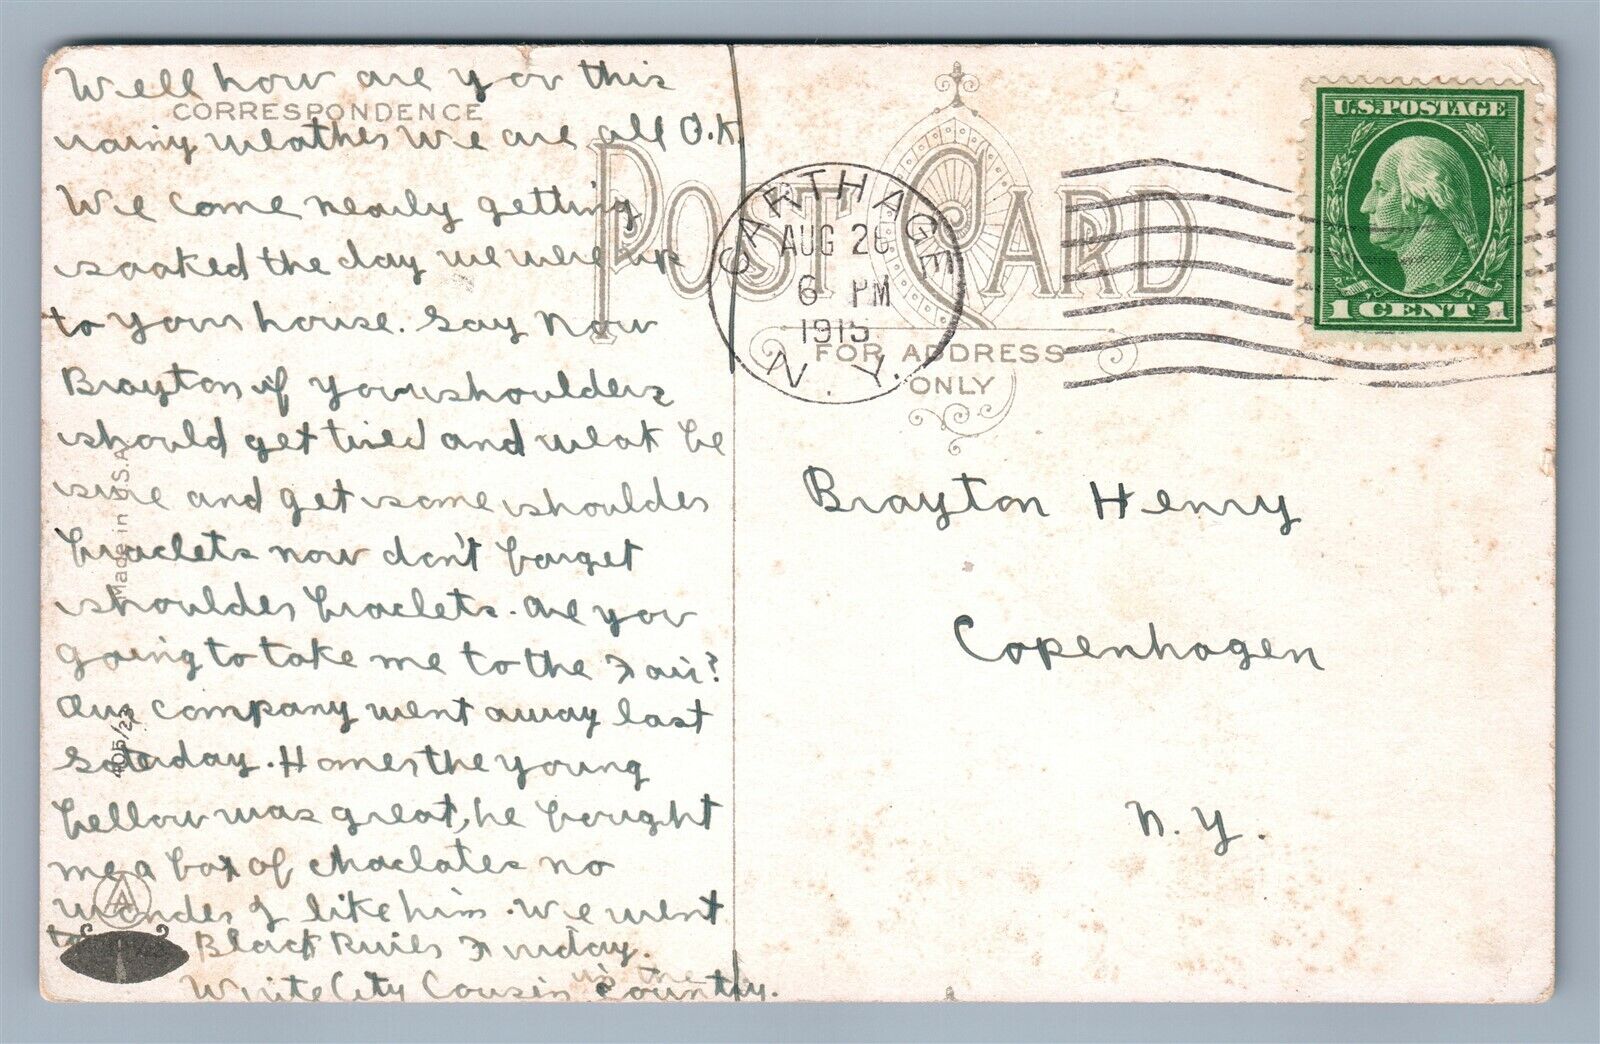 Well how are you this
CORRESPONDENCE
rainy weather We are all O.K.
We come nearly getting
soaked the day we were up
to your house. Say now
Brayton if your shoulders
should get tired and weak be
sure and get some shoulder
braclets now don't forget
shoulder braclets. Are you
going to take me to the Fair?
Our company went away last
Saterday. Homer the young
fellow was great, he bought
me a box of choclates no
wonder I like him. We went
to Black River Friday.
Write City Cousin in the Country.
Made in U.S.A.
405/23
A
POST CARD
FOR ADDRESS
ONLY
CARTHAGE
AUG 26
6 PM
1915
N.Y.
U.S. POSTAGE
1 CENT 1
Brayton Henry
Copenhagen
N.Y.